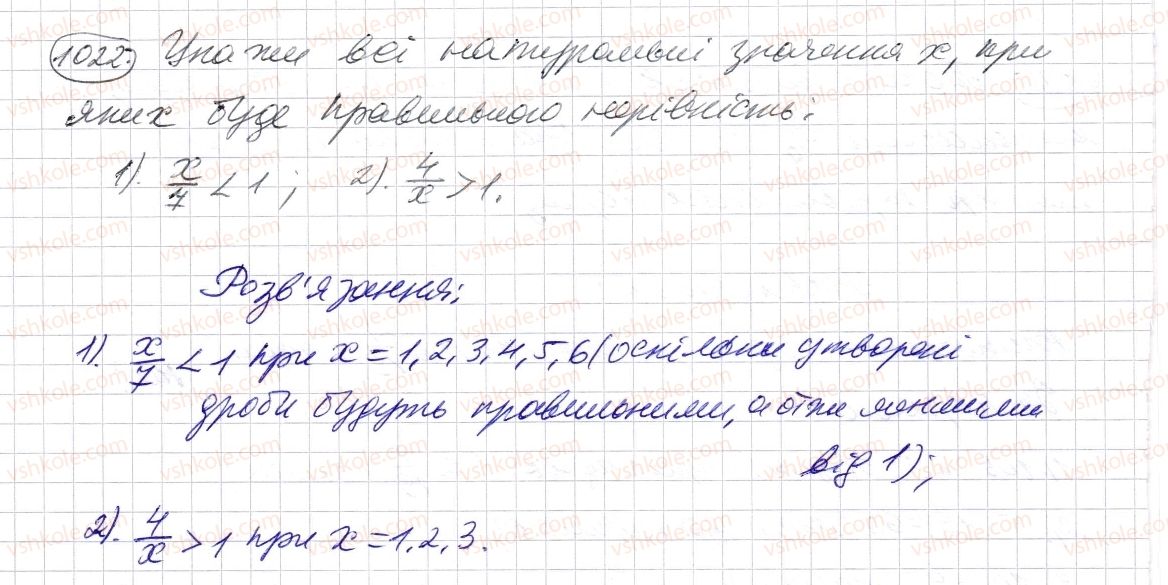 1022. Укажи всі натуральні значення x, при
яких буде правильною нерівність:
1). x/7 < 1; 2). 4/x > 1.
Розв'язання:
1). x/7 < 1 при x = 1, 2, 3, 4, 5, 6 (оскільки утворені
дроби будуть правильними, а отже меншими
від 1);
2). 4/x > 1 при x = 1, 2, 3.